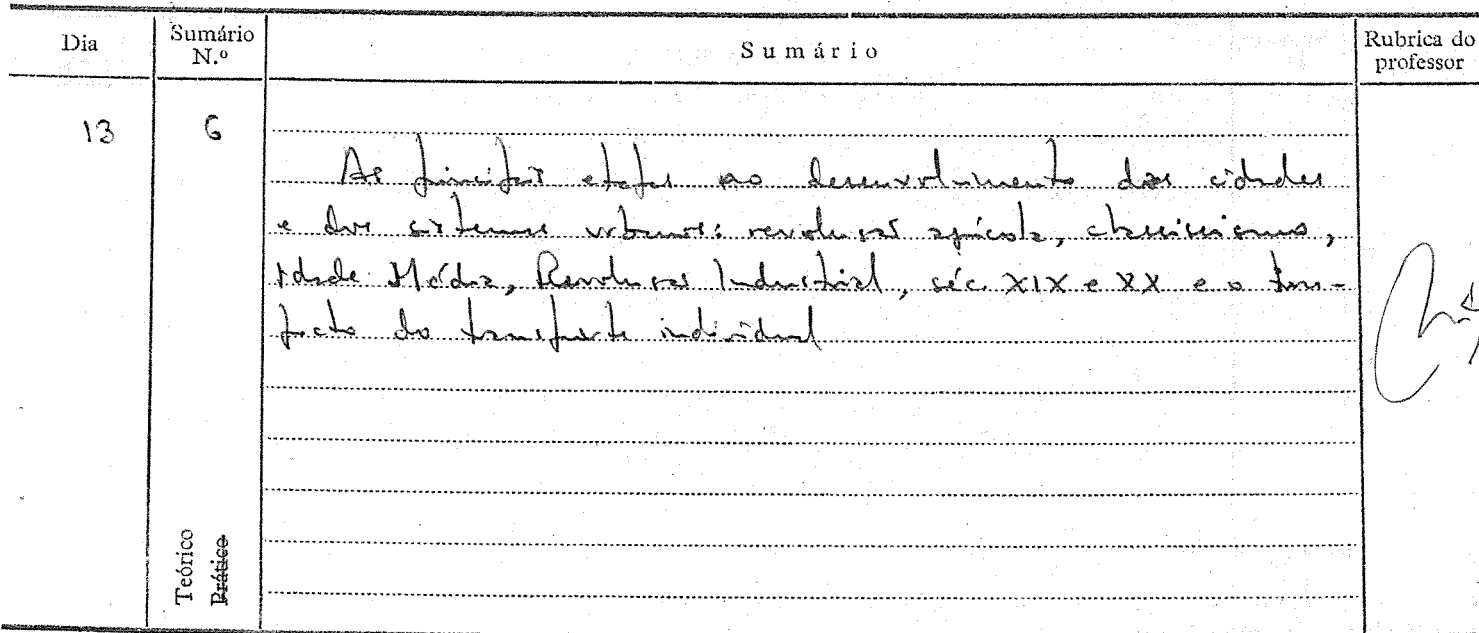 Dia
Sumário N.º
Sumário
Rubrica do professor
13
6
As principais etapas no desenvolvimento das cidades
e dos sistemas urbanos: revolução agrícola, classicismo,
Idade Média, Revolução Industrial, séc. XIX e XX e o
do transporte individual
Teórico
Prático